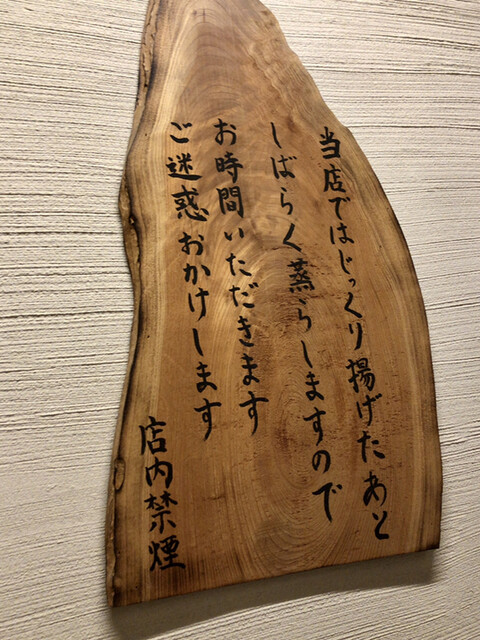 当店ではじっくり揚げたあと
しばらく蒸らしますので
お時間いただきます
ご迷惑おかけします
店内禁煙